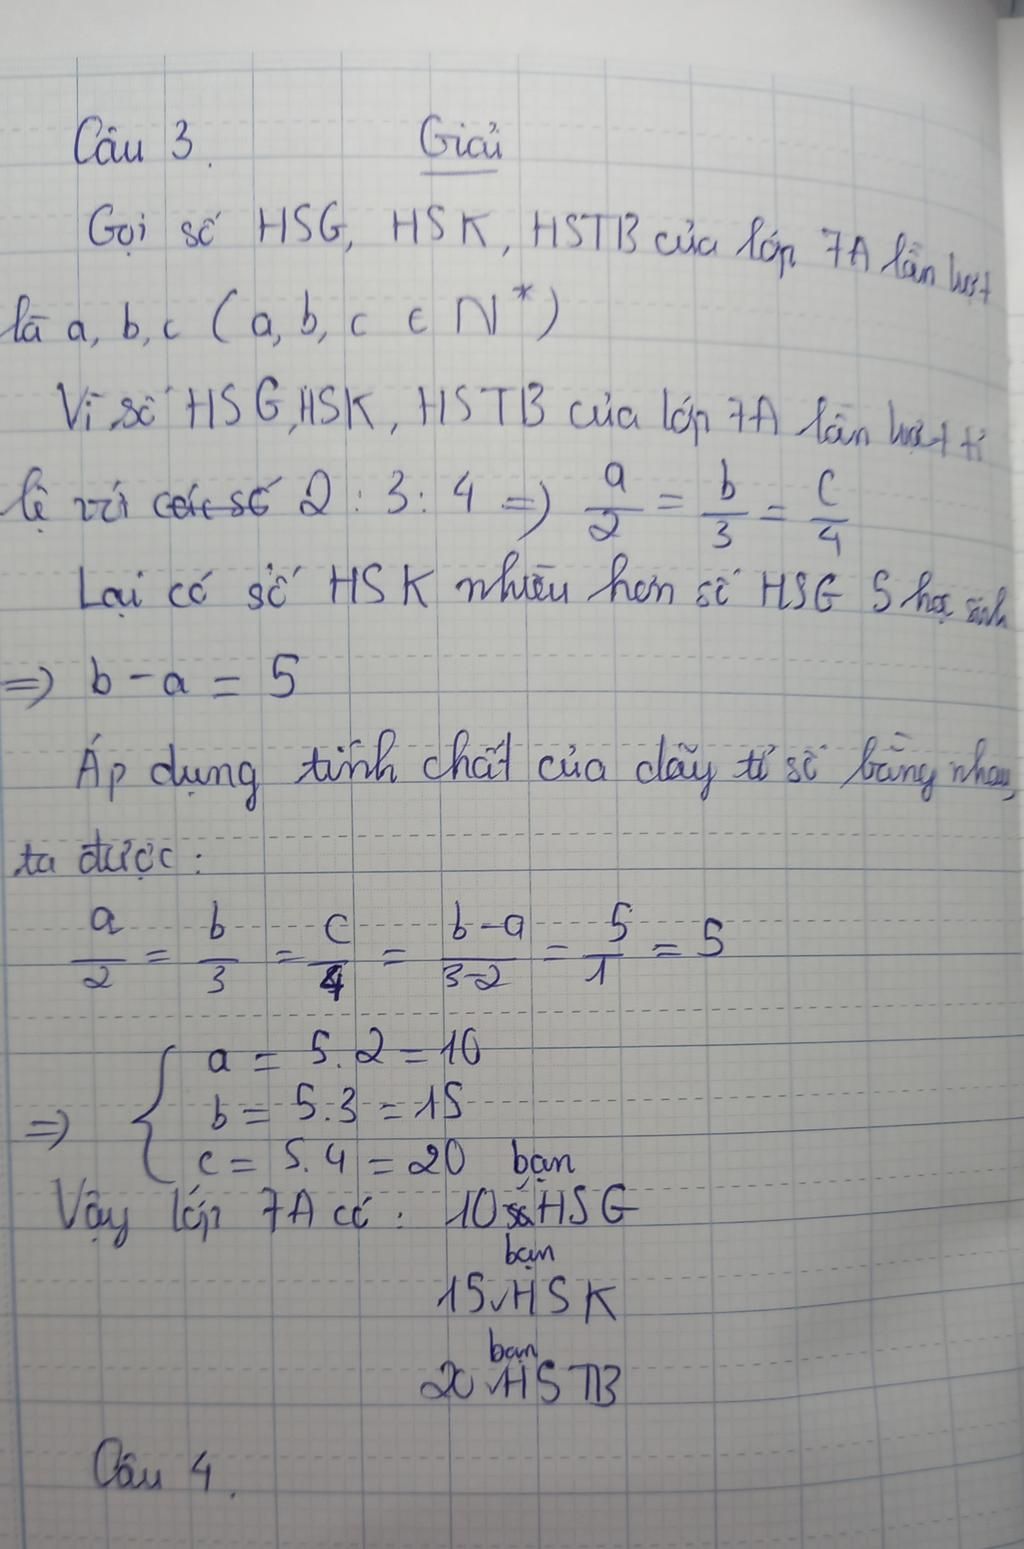 Câu 3. Giải
Gọi số HSG, HSK, HSTB của lớp 7A lần lượt
là a, b, c (a, b, c ∈ N*)
Vì số HSG, HSK, HSTB của lớp 7A lần lượt tỉ
lệ với các số 2 : 3 : 4 => a/2 = b/3 = c/4
Lại có số HSK nhiều hơn số HSG 5 học sinh
=> b - a = 5
Áp dụng tính chất của dãy tỉ số bằng nhau,
ta được:
a/2 = b/3 = c/4 = b-a/3-2 = 5/1 = 5
=> { a = 5.2 = 10
b = 5.3 = 15
c = 5.4 = 20
Vậy lớp 7A có: 10 bạn HSG
15 bạn HSK
20 bạn HSTB
Câu 4.